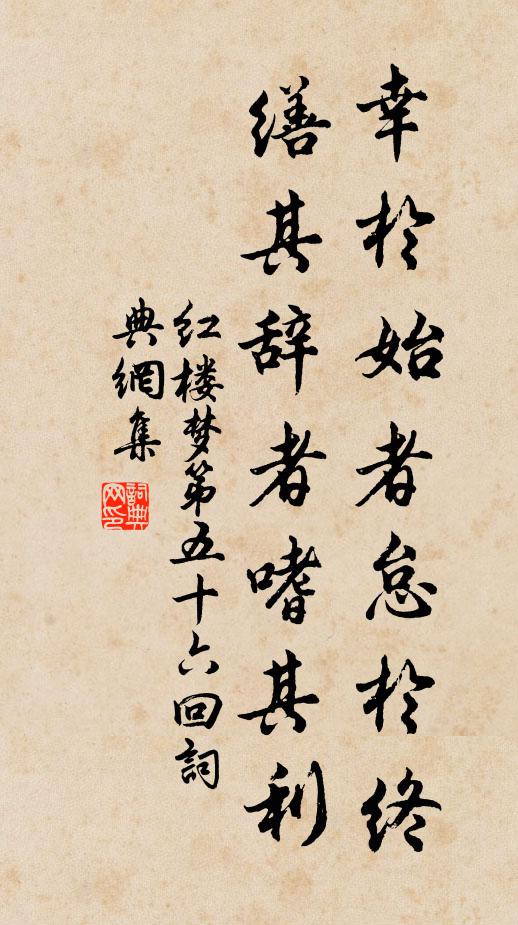 幸於始者怠於终
缮其辞者嗜其利
红楼梦第五十六回詞
典網集
詞典
网印